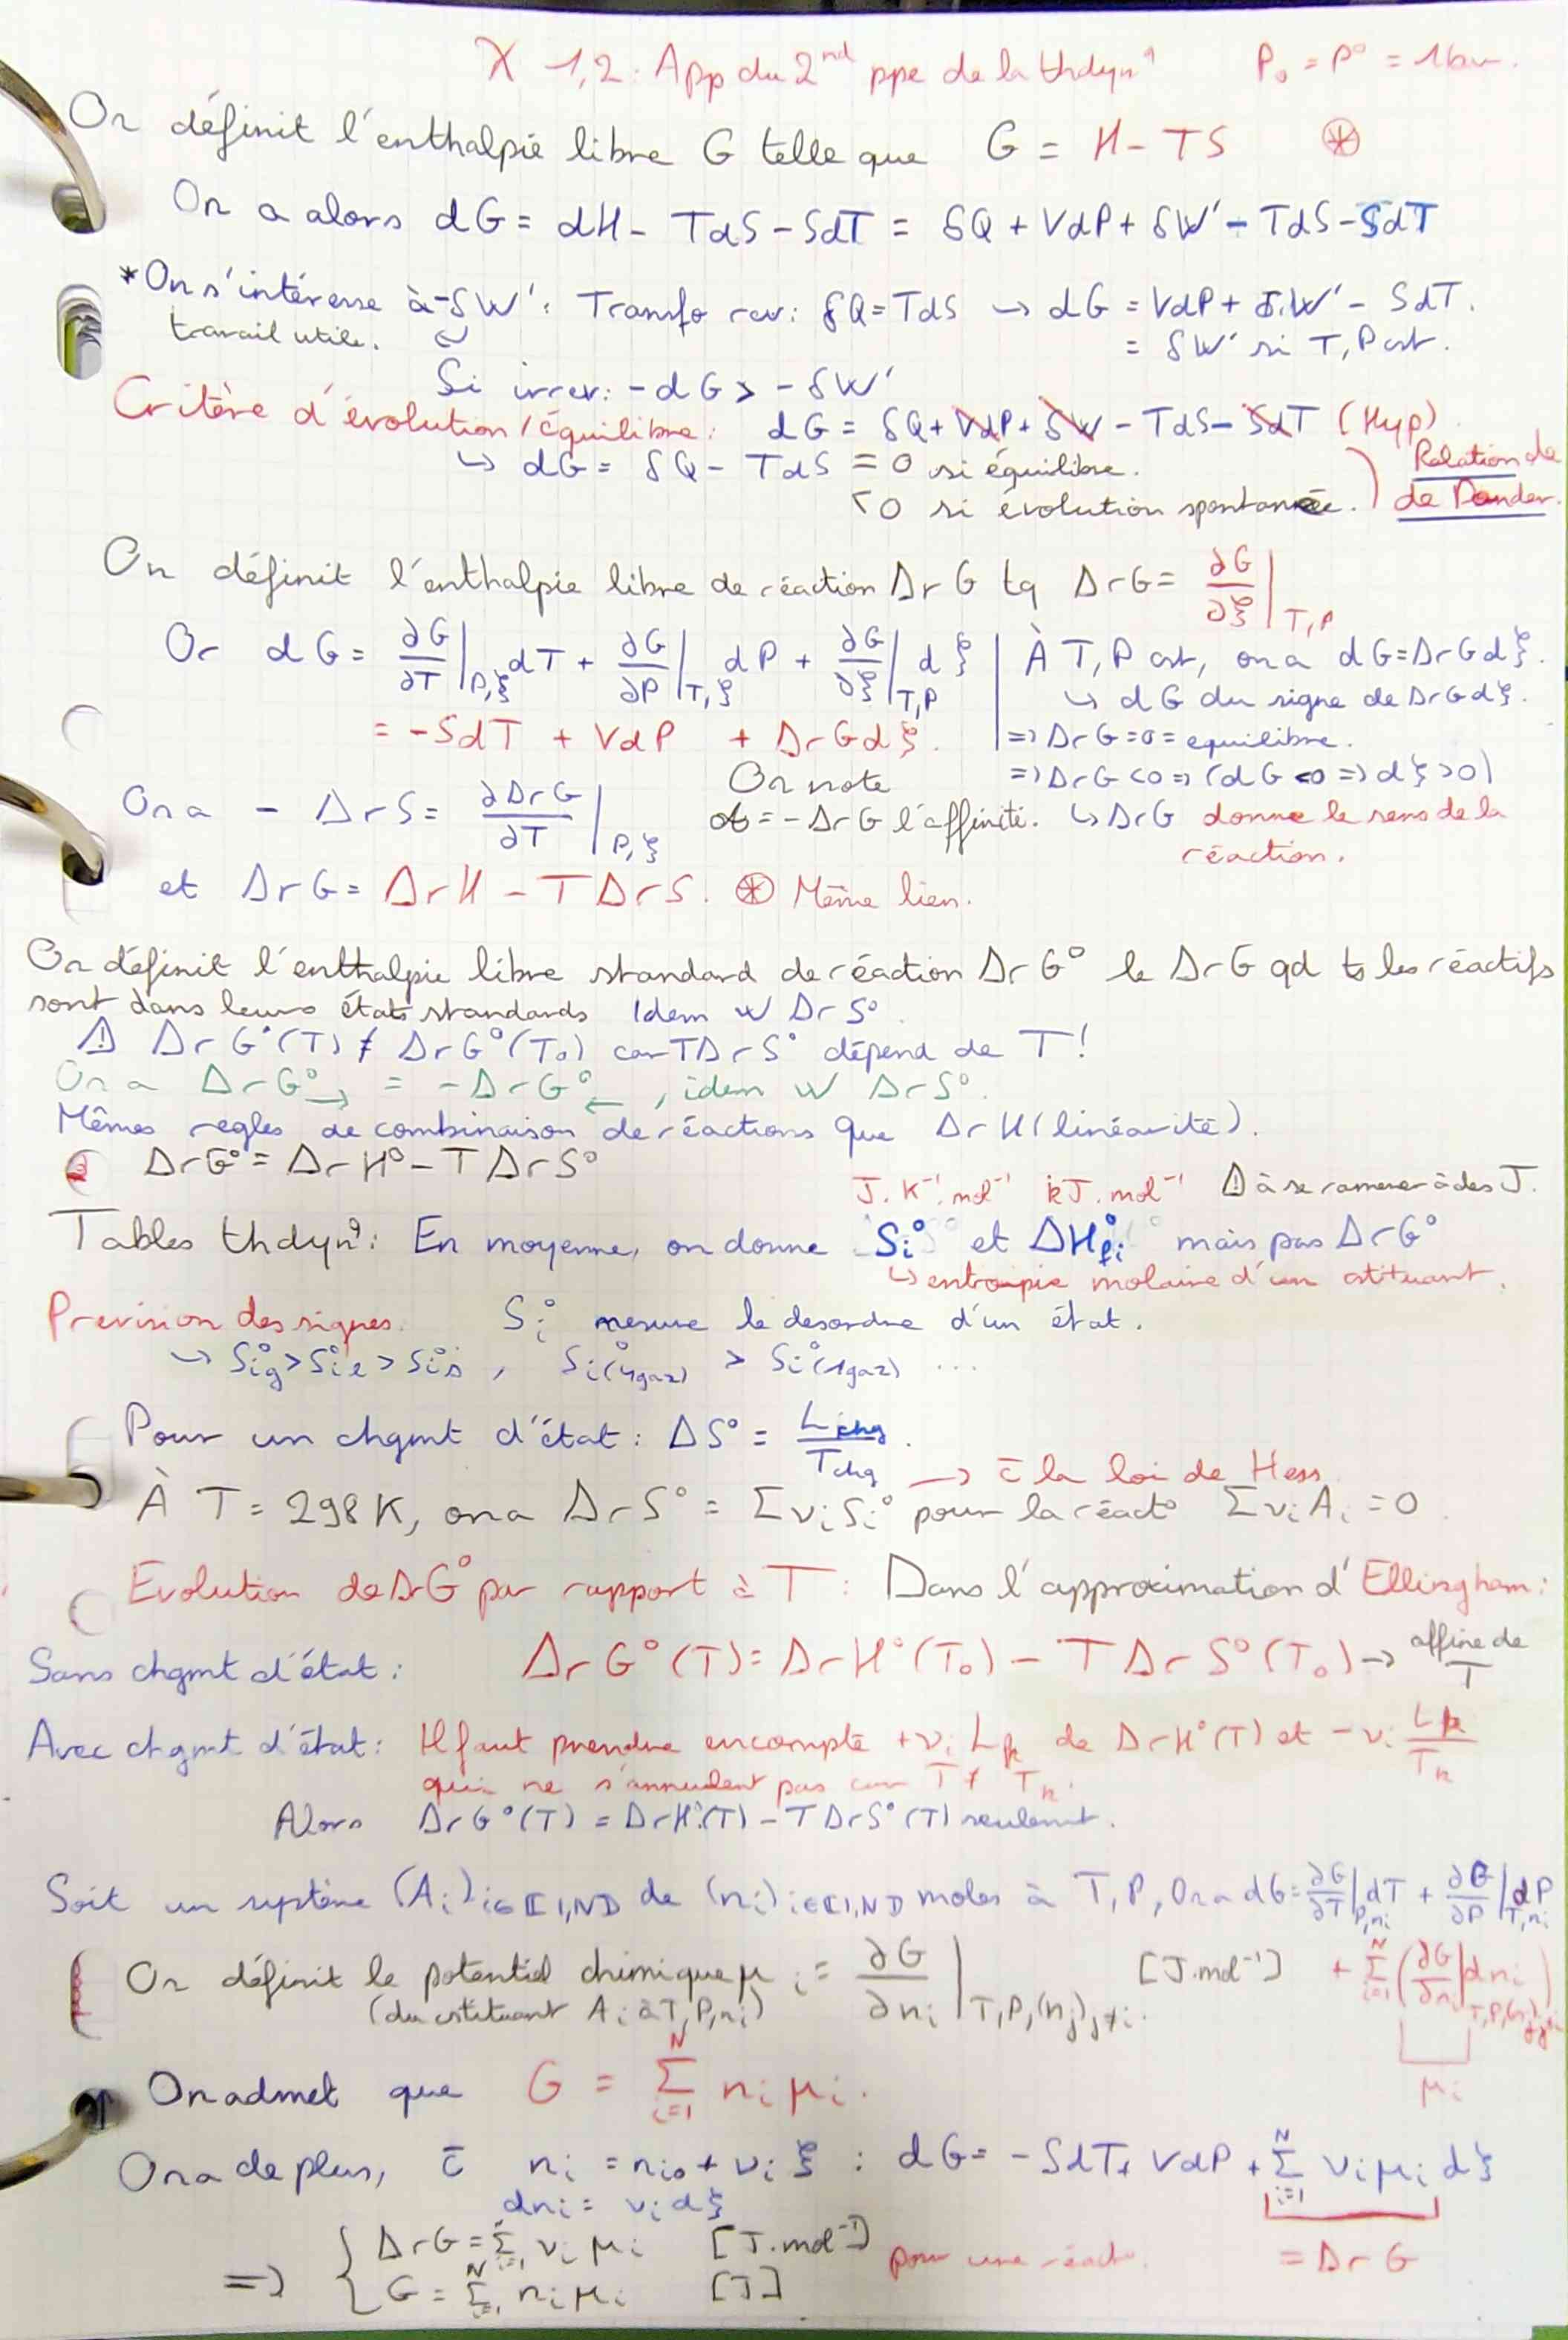 X 1,2 : App du 2nd ppe de la thdyn° P₀ = P° = 1bar.
On définit l'enthalpie libre G telle que G = H - TS ⊛
On a alors dG = dH - TdS - SdT = δQ + VdP + δW' - TdS - SdT
*On s'intéresse à -δW' : Transfo rev : δQ = TdS → dG = VdP + δW' - SdT.
travail utile. = δW' si T, P cst.
Si irrev : -dG > -δW'
Critère d'évolution/équilibre : dG = δQ + VdP + δW - TdS - SdT (Hyp)
↪ dG = δQ - TdS = 0 si équilibre. Relation de
< 0 si évolution spontanée. de Donder.
On définit l'enthalpie libre de réaction ΔrG tq ΔrG = ∂G/∂ξ |T,P
Or dG = ∂G/∂T |P,ξ dT + ∂G/∂P |T,ξ dP + ∂G/∂ξ |T,P dξ | À T, P cst, on a dG = ΔrG dξ.
↪ dG du signe de ΔrG dξ.
= -SdT + VdP + ΔrG dξ. => ΔrG = 0 = equilibre.
On note => ΔrG < 0 => (dG < 0 => dξ > 0)
On a - ΔrS = ∂ΔrG/∂T |P,ξ 𝒜 = -ΔrG l'affinité. ↪ ΔrG donne le sens de la
réaction.
et ΔrG = ΔrH - TΔrS. ⊛ Même lien.
On définit l'enthalpie libre standard de réaction ΔrG° le ΔrG qd ts les réactifs
sont dans leurs états standards Idem w ΔrS°.
⚠ ΔrG°(T) ≠ ΔrG°(T₀) car TΔrS° dépend de T !
On a ΔrG°→ = -ΔrG°←, idem w ΔrS°.
Mêmes regles de combinaison de réactions que ΔrH (linéarité).
ΔrG° = ΔrH° - TΔrS°
J.K⁻¹.mol⁻¹ kJ.mol⁻¹ ⚠ à se ramener à des J.
Tables thdyn° : En moyenne, on donne Si° et ΔHfi° mais pas ΔrG°
↪ entropie molaire d'un cstituant.
Prevision des signes. Si° mesure le desordre d'un état.
↪ Si°g > Si°l > Si°s, Si°(4gaz) > Si°(1gaz) ...
Pour un chgmt d'état : ΔS° = Lchg/Tchg.
→ c̄ la loi de Hess
À T = 298K, on a ΔrS° = Σνi Si° pour la réact° Σνi Ai = 0.
Evolution de ΔrG° par rapport à T : Dans l'approximation d'Ellingham :
Sans chgmt d'état : ΔrG°(T) = ΔrH°(T₀) - TΔrS°(T₀) → affine de T
Avec chgmt d'état : Il faut prendre en compte +νi Lk de ΔrH°(T) et -νi Lk/Tk
qui ne s'annulent pas car T ≠ Tk.
Alors ΔrG°(T) = ΔrH°(T) - TΔrS°(T) seulemt.
Soit un système (Ai)i∈⟦1,N⟧ de (ni)i∈⟦1,N⟧ moles à T, P, On a dG = ∂G/∂T |P,ni dT + ∂G/∂P |T,ni dP
On définit le potentiel chimique μi = ∂G/∂ni |T,P,(nj)j≠i. [J.mol⁻¹] + Σ(i=1 à N) (∂G/∂ni |T,P,(nj)j≠i dni)
(du cstituant Ai à T, P, ni)
μi
On admet que G = Σ(i=1 à N) ni μi.
On a de plus, c̄ ni = ni₀ + νi ξ : dG = -SdT + VdP + Σ(i=1 à N) νi μi dξ
dni = νi dξ
=> { ΔrG = Σ(i=1 à N) νi μi [J.mol⁻¹] pour une réact°. = ΔrG
G = Σ(i=1 à N) ni μi [J]